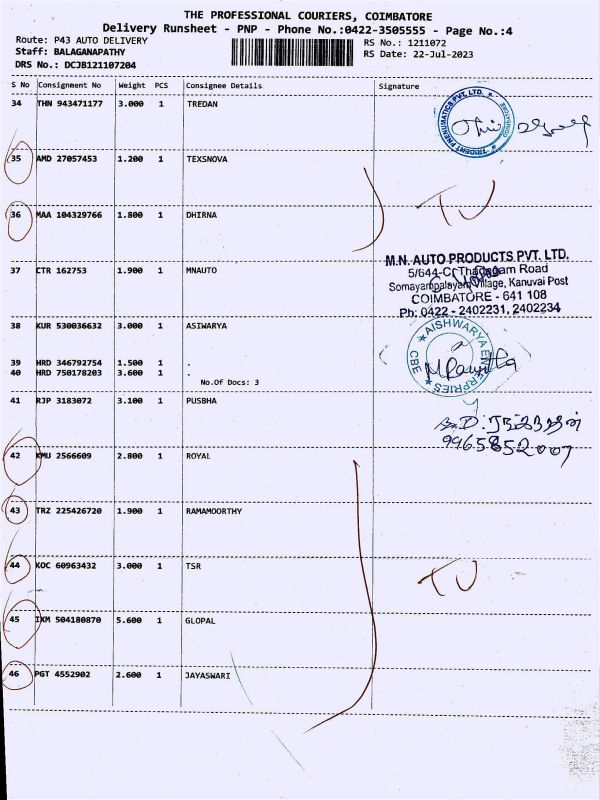 THE PROFESSIONAL COURIERS, COIMBATORE
Delivery Runsheet - PNP - Phone No.:0422-3505555 - Page No.:4
Route: P43 AUTO DELIVERY
Staff: BALAGANAPATHY
DRS No.: DCJB121107204
RS No.: 1211072
RS Date: 22-Jul-2023
S No Consignment No Weight PCS Consignee Details Signature
34 THN 943471177 3.000 1 TREDAN
TRIDENT PNEUMATICS PVT. LTD. COIMBATORE
35 AMD 27057453 1.200 1 TEXSNOVA
36 MAA 104329766 1.800 1 DHIRNA
37 CTR 162753 1.900 1 MNAUTO
M.N. AUTO PRODUCTS PVT. LTD.
5/644-C, Thadagam Road
Somayampalayam Village, Kanuvai Post
COIMBATORE - 641 108
Ph: 0422 - 2402231, 2402234
38 KUR 530036632 3.000 1 ASIWARYA
AISHWARYA ENTERPRIES CBE
39 HRD 346792754 1.500 1 .
40 HRD 750178203 3.600 1 .
No.Of Docs: 3
41 RJP 3183072 3.100 1 PUSBHA
9965852007
42 KMU 2566609 2.800 1 ROYAL
43 TRZ 225426720 1.900 1 RAMAMOORTHY
44 KOC 60963432 3.000 1 TSR
45 IXM 504180870 5.600 1 GLOPAL
46 PGT 4552902 2.600 1 JAYASWARI